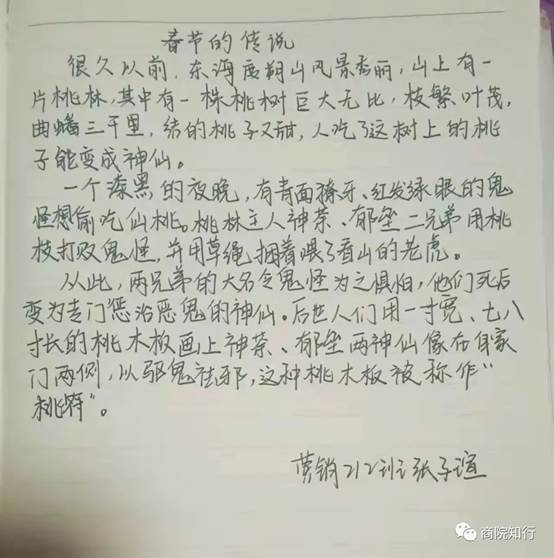 春节的传说
很久以前,东海度朔山风景秀丽,山上有一
片桃林,其中有一株桃树巨大无比,枝繁叶茂,
曲蟠三千里,结的桃子又甜,人吃了这树上的桃
子能变成神仙。
一个漆黑的夜晚,有青面獠牙、红发绿眼的鬼
怪想偷吃仙桃。桃林主人神荼、郁垒二兄弟用桃
枝打败鬼怪,并用草绳捆着喂了看山的老虎。
从此,两兄弟的大名令鬼怪为之惧怕,他们死后
变为专门惩治恶鬼的神仙。后世人们用一寸宽、七八
寸长的桃木板画上神荼、郁垒两神仙像在自家
门两侧,以驱鬼祛邪,这种桃木板被称作“
桃符”。
营销212班张子谊
商院知行